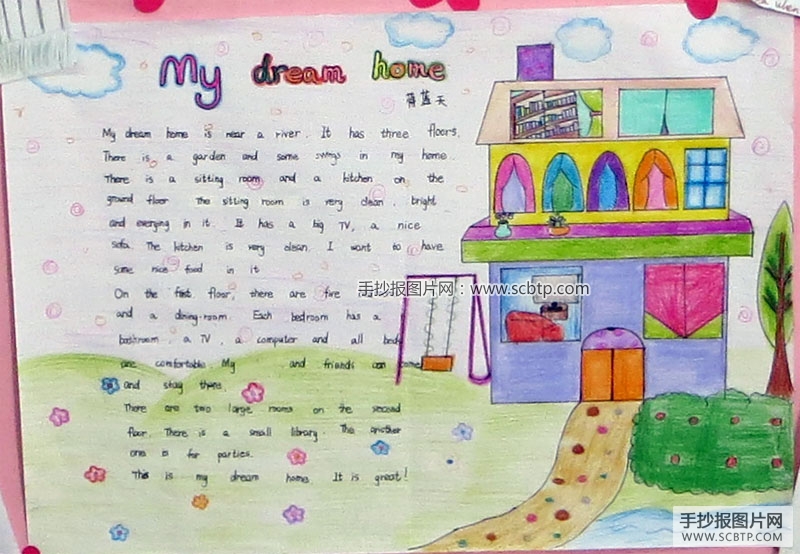 My dream home
蒋蓝天
My dream home is near a river. It has three floors.
There is a garden and some swings in my home.
There is a sitting room and a kitchen on the
ground floor. The sitting room is very clean, bright
and everying in it. It has a big TV, a nice
sofa. The kitchen is very clean. I want to have
some nice food in it
手抄报图片网:www.scbtp.com
On the first floor, there are five
and a dining-room. Each bedroom has a
bathroom, a TV, a computer and all beds
are comfortable. My and friends can come
and stay there.
There are two large rooms on the second
floor. There is a small library. The another
one is for parties.
This is my dream home. It is great!
手抄报图片网
WWW.SCBTP.COM